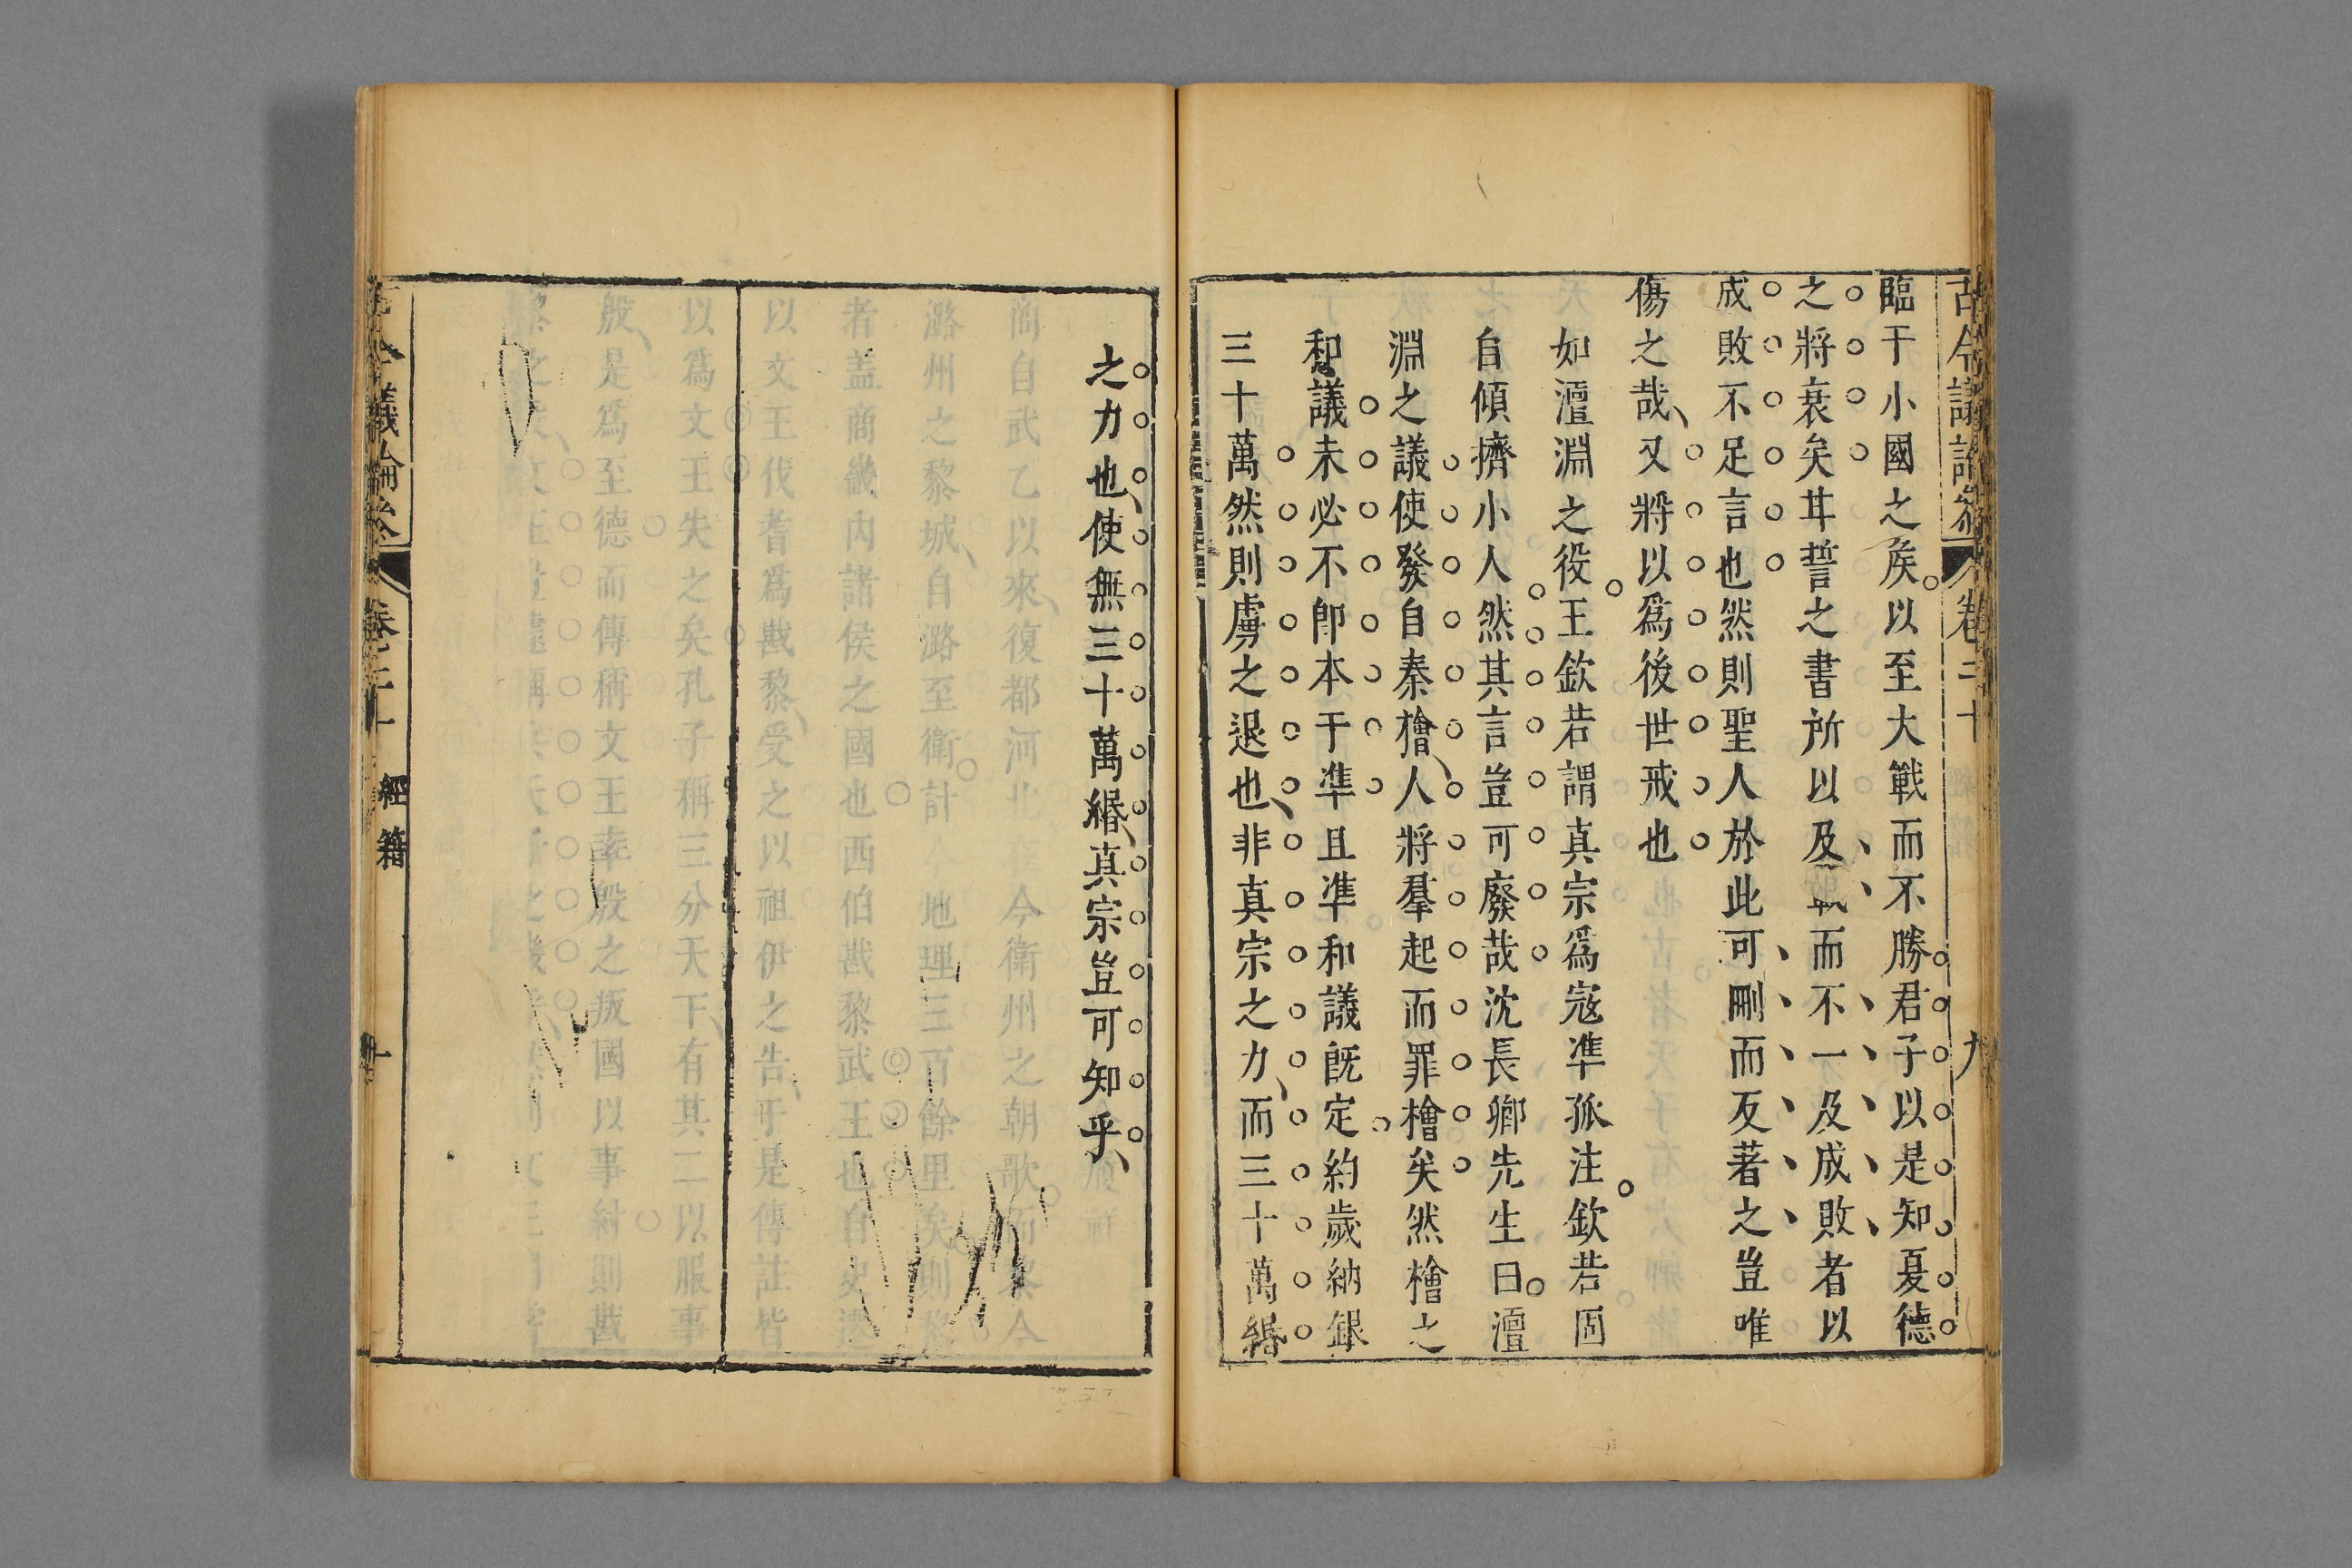 古今議論參 卷二十 九
臨于小國之矦以至大戰而不勝君子以是知夏德
之將衰矣其誓之書所以及戰而不一及成敗者以
成敗不足言也然則聖人於此可刪而反著之豈唯
傷之哉又將以爲後世戒也
如澶淵之役王欽若謂真宗爲寇凖孤注欽若固
自傾擠小人然其言豈可廢哉沈長卿先生曰澶
淵之議使發自秦檜人將羣起而罪檜矣然檜之
和議未必不卽本于凖且凖和議旣定約歲納銀
三十萬然則虜之退也非真宗之力而三十萬緡
之力也使無三十萬緡真宗豈可知乎
議論參 卷二十 經籍 十